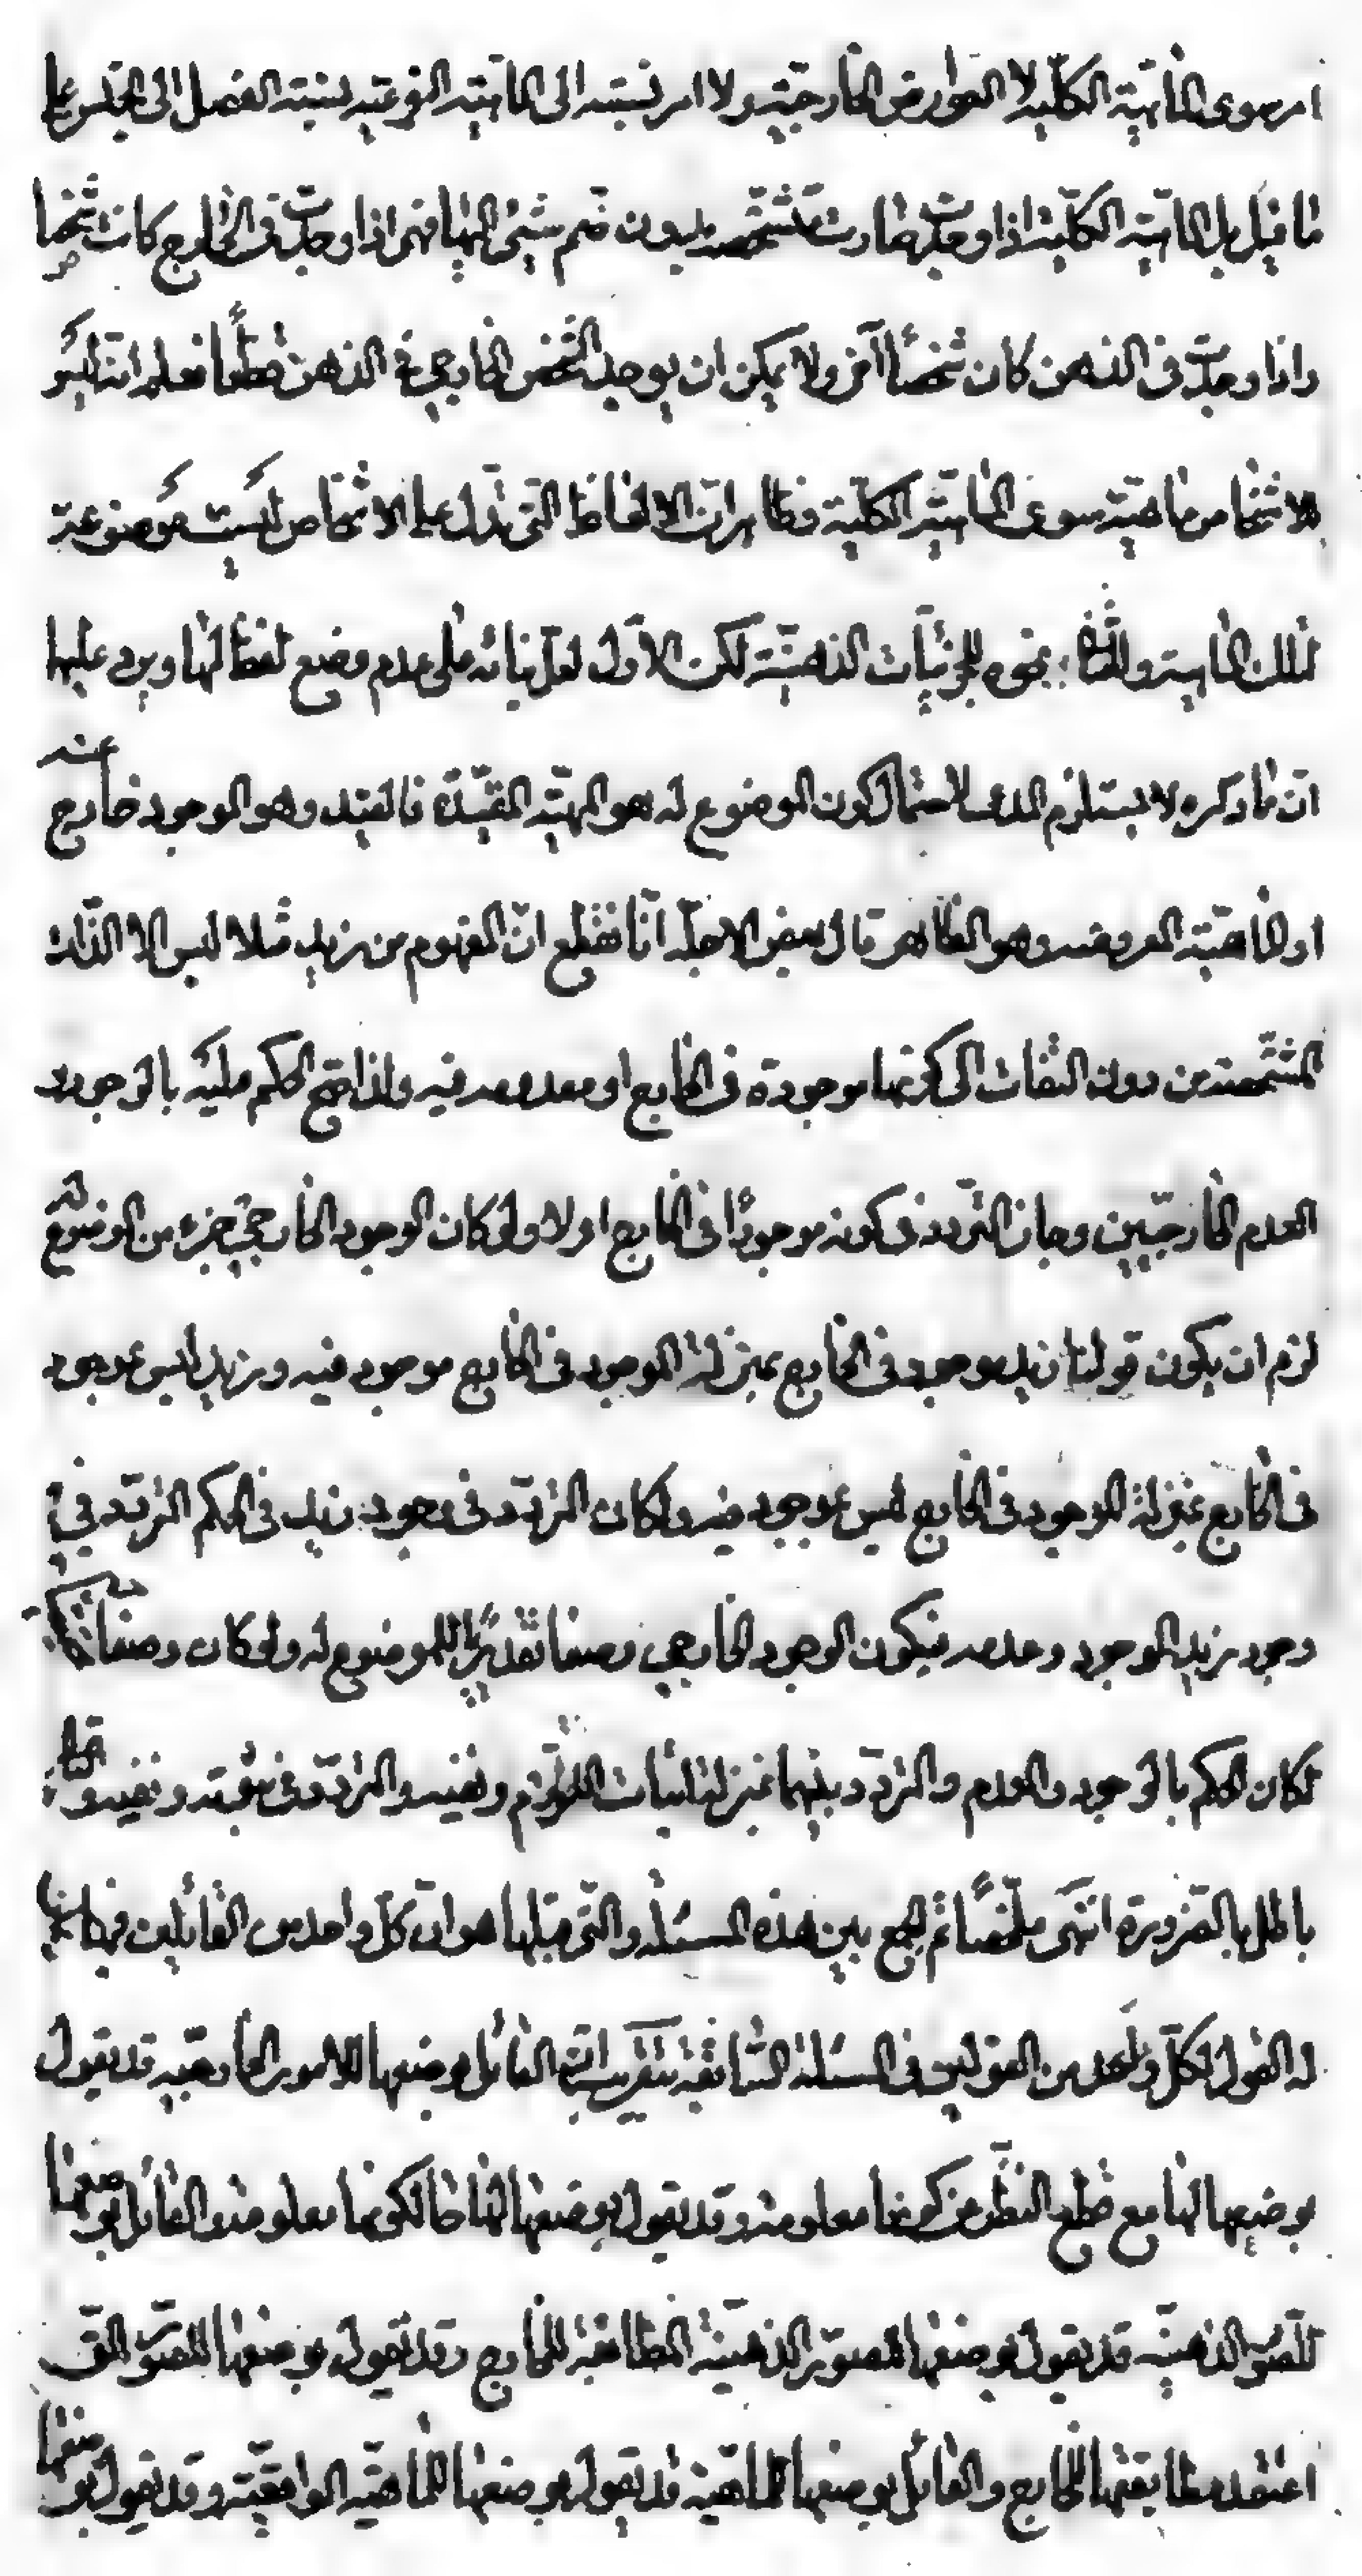 امر سوى الماهيّة الكليّة لا العوارض الخارجيّة ولا امر نسبته الى الماهيّة النوعيّة نسبة الفصل الى الجنس على
ما قيل بل الماهيّة الكليّة اذا وجدت صارت متشخصة بدون ضم شيئ اليها فهى اذا وجدت فى الخارج كانت شخصا
واذا وجدت فى الذهن كان شخصًا آخر ولا يمكن ان يوجد الشخص الخارجي في الذهن قطعًا فعلم انّه ليس
للاشخاص ماهيّة سوى الماهيّة الكليّة فظاهر ان الالفاظ التى تدل على الاشخاص ليست موضوعة
لتلك الماهية والقضاء بنحوه للجزئيّات الذهنيّة لكن الاوّل لعلّ بنائه على عدم وضع لفظ لها ويرد عليها
انّ ما ذكره لا يستلزم المدعى لاحتمال كون الموضوع له هو المهيّة المقيّدة فالقيد وهو الوجود خارج عنه
او الماهيّة المعروضة وهو الظاهر قال بعض الاجلّة انّا نقطع انّ المفهوم من زيد مثلا ليس الا الذّات
المشخّصة من دون التفات الى كونها موجودة فى الخارج او معدومة فيه ولذا صحّ الحكم عليه بالوجود و
العدم الخارجيّين وجاز التّردد فى كونه موجودًا فى الخارج او لا ولو كان الوجود الخارجيّ جزء من الموضوع له
لزم ان يكون قولنا زيد موجود فى الخارج بمنزلة الموجود فى الخارج موجود فيه وزيد ليس بموجود
فى الخارج بمنزلة الموجود فى الخارج ليس بموجود فيه ولكان التردّد فى وجود زيد فى الحكم التردّد في
وجود زيد الموجود وعدمه فيكون الوجود الخارجي وصفا تقديريًّا للموضوع له ولو كان وصفا
لكان الحكم بالوجود والعدم والتردّد بينهما بمنزلة اثبات اللوازم ونفيه والتردّد فى ثبوته ونفيه والتالى
باطل بالضرورة انتهى ملخّصًا ثم الجمع بين هذه المسئلة والتى قبلها هو انّ كلّ واحد من القائلين فيها
له القول لكلّ واحد من القولين فى المسئلة السّابقة القائل بوضعها للامور الخارجيه قد يقول
بوضعها لها مع قطع النظر عن كونها معلومة وقد يقول بوضعها لها حالكونها معلومة والقائل بوضعها
للصّور الذهنيّه قد يقول بوضعها للصوّر الذهنيّة المطابقة للخارج وقد يقول بوضعها للصّور التى
اعتقد مطابقتها للخارج والقائل بوضعها للماهيّة قد يقول بوضعها للماهيّه الواقعيّة وقد يقول بوضعها